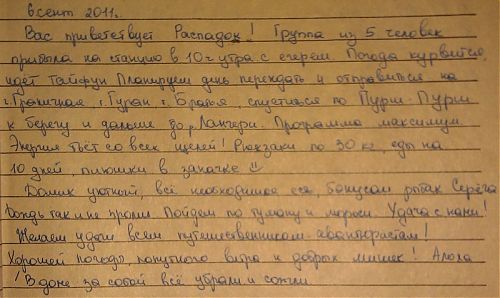 6 сент 2011г.
Вас приветствует Распадок! Группа из 5 человек
прибыла на станцию в 10 г утра с егерем. Погода курвится,
идет Тайфун Планируем день переждать и отправиться на
г. Граничная, г. Гуран, г. Братья, спуститься по Пурш-Пурш
к берегу и дальше до р. Лангери. Программа максимум.
Энергия бьёт со всех щелей! Рюкзаки по 30 кг, еды на
10 дней, плюшки в заначке
Домик уютный, всё необходимое есть, бонусом рыбак Серёга
Дождь так и не прошел Пойдем по туману и мороси. Удача с нами!
Желаем удачи всем путешественникам-авантюристам!
Хорошей погоды, попутного ветра и добрых мишек! Алоха
! В доме за собой всё убрали и сожгли